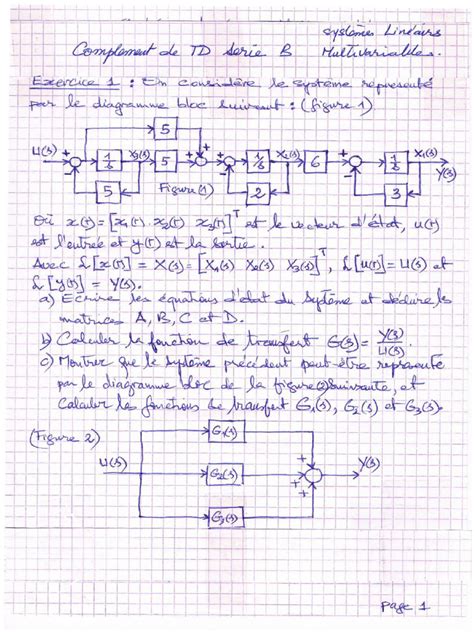 Systèmes Linéaires
Complement de TD Serie B Multivariables.
Exercice 1 : On considère le système représenté
par le diagramme bloc suivant : (figure 1)
5
U(s) + 1/s X3(s) 5 + + 1/s X2(s) 6 + 1/s X1(s)
Y(s)
5 Figure (1) 2 3
Où x(t) = [x1(t) x2(t) x3(t)]^T est le vecteur d'état, u(t)
est l'entrée et y(t) est la sortie.
Avec L[x(t)] = X(s) = [X1(s) X2(s) X3(s)]^T, L[u(t)] = U(s) et
L[y(t)] = Y(s).
a) Ecrire les équations d'état du système et déduire les
matrices A, B, C et D.
b) Calculer la fonction de transfert G(s) = Y(s)/U(s).
c) Montrer que le système précédent peut-être représenté
par le diagramme bloc de la figure (2) suivante, et
Calculer les fonctions de transfert G1(s), G2(s) et G3(s).
(Figure 2)
G1(s)
U(s) G2(s) + + + Y(s)
G3(s)
Page 1